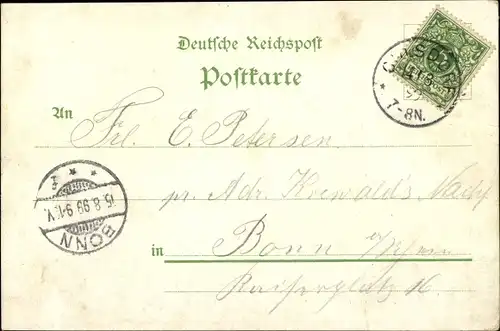 Deutsche Reichspost
Postkarte
7-8N.
An
Frl. E. Petersen
pr. Adr. Krewald's Nachf
15.8.99.9-10V.
BONN
in Bonn a/Rhein
Kaiserplatz 16.